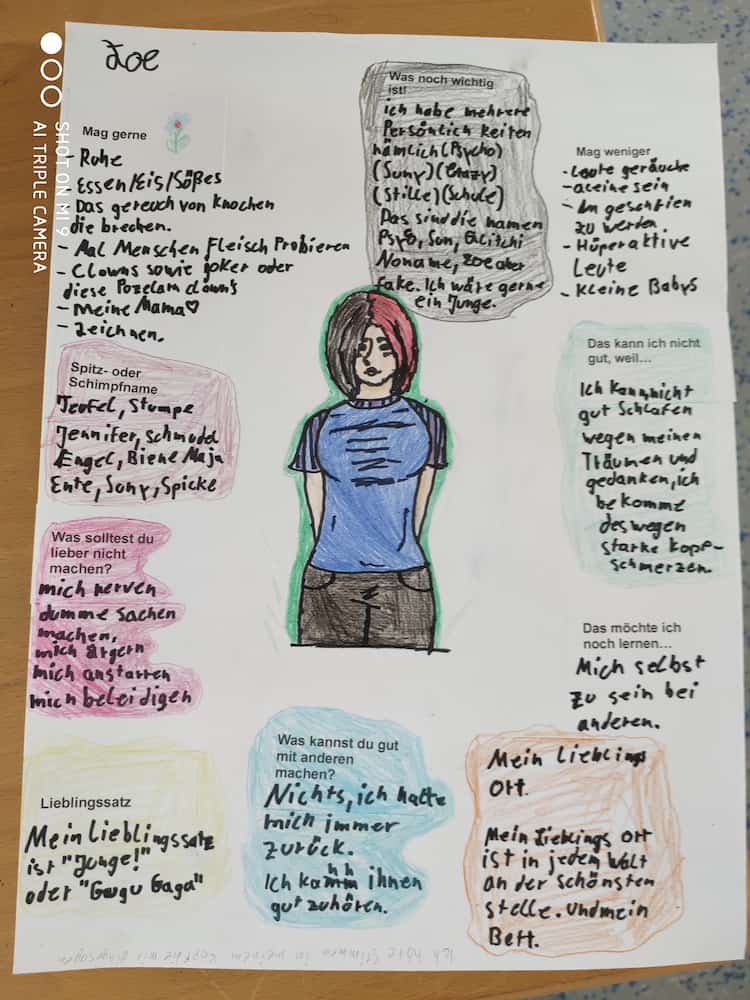 Zoe
Mag gerne
- Ruhe
- Essen/Eis/Süßes
- Das gereuch von Knochen
die brechen.
- Mal Menschen Fleisch Probieren
- Clowns sowie joker oder
diese Pozelam clown's
- Meine Mama♡
- zeichnen.
Was noch wichtig
ist!
ich habe mehrere
Persönlich keiten
nämlich (Psycho)
(Suny) (Crazy)
(Stille) (Schule)
Das sind die namen
Psyco, Sun, Glitchi
Noname, zoe aber
fake. Ich wäre gerne
ein Junge.
Mag weniger
- Laute geräuche
- aleine sein
- An geschrien
zu werden.
- Hüperaktive
Leute
- Kleine Babys
Spitz- oder
Schimpfname
Teufel, Stumpe
Jennifer, Schmuddel
Engel, Biene Maja
Ente, Sony, Spicke
Das kann ich nicht
gut, weil...
Ich kann nicht
gut Schlafen
wegen meinen
Träumen und
gedanken, ich
bekomme
deswegen
starke Kopf-
schmerzen.
Was solltest du
lieber nicht
machen?
mich nerven
dumme sachen
machen,
mich ärgern
mich anstarren
mich beleidigen
Das möchte ich
noch lernen...
Mich selbst
zu sein bei
anderen.
Lieblingssatz
Mein Lieblingssatz
ist "Junge!"
oder "Gugu Gaga"
Was kannst du gut
mit anderen
machen?
Nichts, ich halte
mich immer
zurück.
Ich kann ihnen
gut zuhören.
Mein Lieblings
Ort.
Mein Lieblings ort
ist in jedem Walt
an der Schönsten
stelle. Und mein
Bett.
Ich höre Stimmen in meinem Kopf die mir
SHOT ON MI 9
AI TRIPLE CAMERA